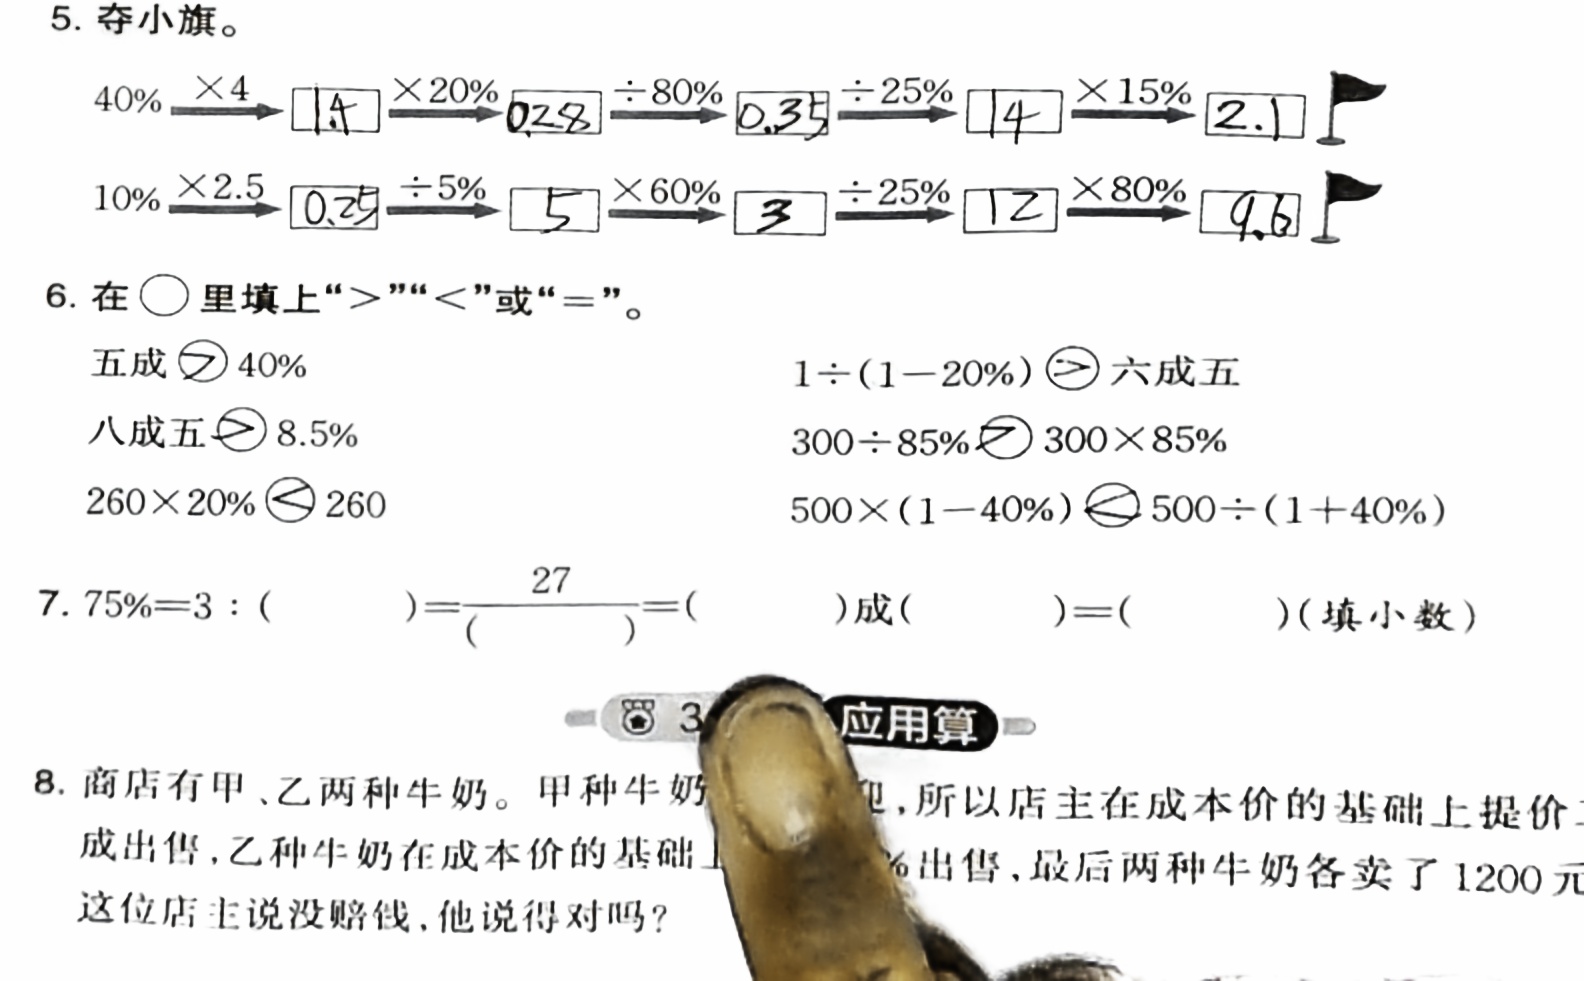 5. 夺小旗。
40% ×4 1.4 ×20% 0.28 ÷80% 0.35 ÷25% 14 ×15% 2.1
10% ×2.5 0.25 ÷5% 5 ×60% 3 ÷25% 12 ×80% 9.6
6. 在○里填上“>”“<”或“=”。
五成 > 40% 1÷(1-20%) > 六成五
八成五 > 8.5% 300÷85% > 300×85%
260×20% < 260 500×(1-40%) < 500÷(1+40%)
7. 75%=3:( )=27/( )=( )成( )=( )(填小数)
3 应用算
8. 商店有甲、乙两种牛奶。甲种牛奶 迎,所以店主在成本价的基础上提价
成出售,乙种牛奶在成本价的基础上 %出售,最后两种牛奶各卖了1200元
这位店主说没赔钱,他说得对吗?